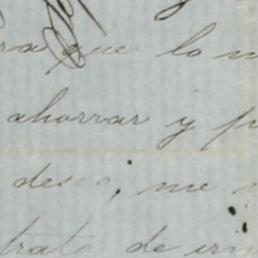 ra que lo
ahorrar y p
deseo, me
trato de